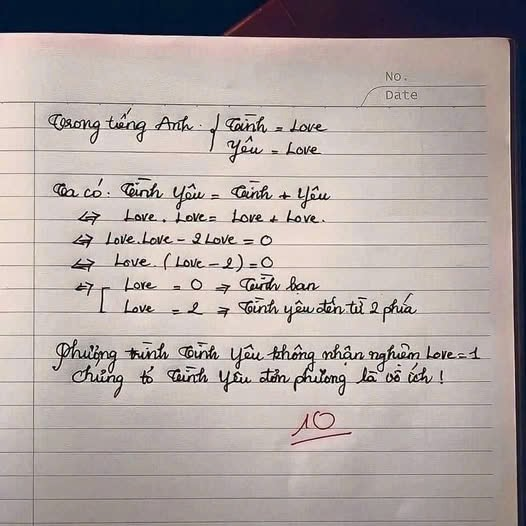 No.
Date
Trong tiếng Anh. { Tình = Love
Yêu = Love
Ta có: Tình Yêu = Tình + Yêu
⇔ Love . Love = Love + Love.
⇔ Love.Love - 2Love = 0
⇔ Love.(Love - 2) = 0
⇔ [ Love = 0 ⇒ Tình bạn
Love = 2 ⇒ Tình yêu đến từ 2 phía
Phương trình Tình Yêu không nhận nghiệm Love = 1
chứng tỏ Tình Yêu đơn phương là vô ích !
10